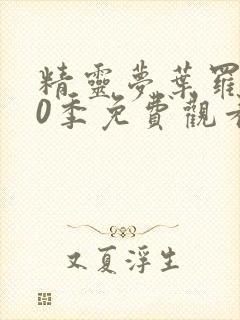 精靈夢葉羅
0季免費觀看
又夏浮生